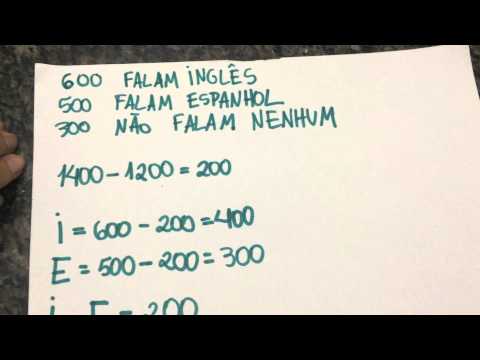 600 FALAM iNGLÊS
500 FALAM ESPANHOL
300 NÃO FALAM NENHUM
1400-1200=200
i=600-200=400
E=500-200=300